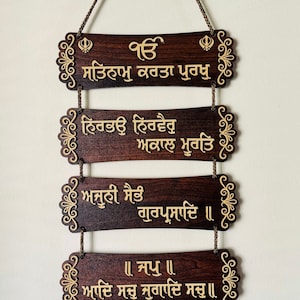 ੴ
ਸਤਿਨਾਮੁ ਕਰਤਾ ਪੁਰਖੁ
ਨਿਰਭਉ ਨਿਰਵੈਰੁ
ਅਕਾਲ ਮੂਰਤਿ
ਅਜੂਨੀ ਸੈਭੰ
ਗੁਰਪ੍ਰਸਾਦਿ ॥
॥ ਜਪੁ ॥
ਆਦਿ ਸਚੁ ਜੁਗਾਦਿ ਸਚੁ॥